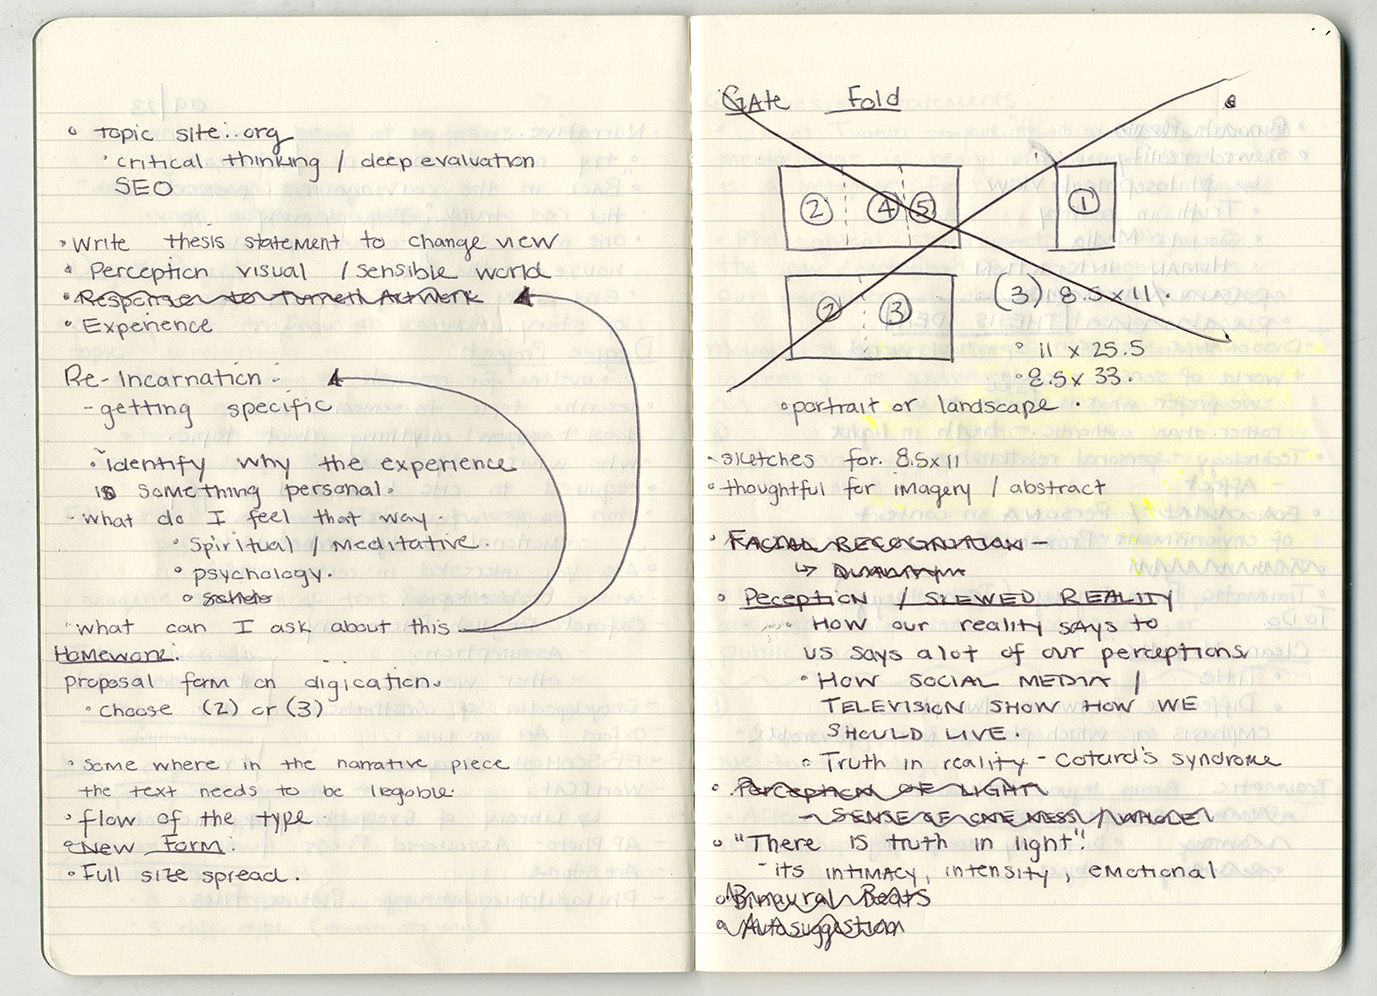 topic site: .org
critical thinking / deep evaluation
SEO
Write thesis statement to change view
Perception visual / sensible world
Response to Turrell Artwork
Experience
Re-Incarnation.
- getting specific
identify why the experience
is something personal.
- what do I feel that way.
Spiritual / Meditative.
psychology.
what can I ask about this
Homework:
proposal form on digication.
choose (2) or (3)
Some where in the narrative piece
the text needs to be legable.
flow of the type.
New Form:
Full size spread.
GAte Fold
2 4 5 1
2 3 (3) 8.5x11.
11 x 25.5
8.5 x 33.
portrait or landscape.
sketches for 8.5x11
thoughtful for imagery / abstract
FACIAL RECOGNITION -
Peception / SKEWED REALITY
How our reality says to
us says a lot of our perceptions
HOW SOCIAL MEDIA /
TELEVISION SHOW HOW WE
SHOULD LIVE.
Truth in reality - Cotard's syndrome
Perception OF LIGHT
- SENSE OF ONE NESS / WHOLE
"There is truth in light".
- its intimacy, intensity, emotional
Binaural Beats
Autosuggestion